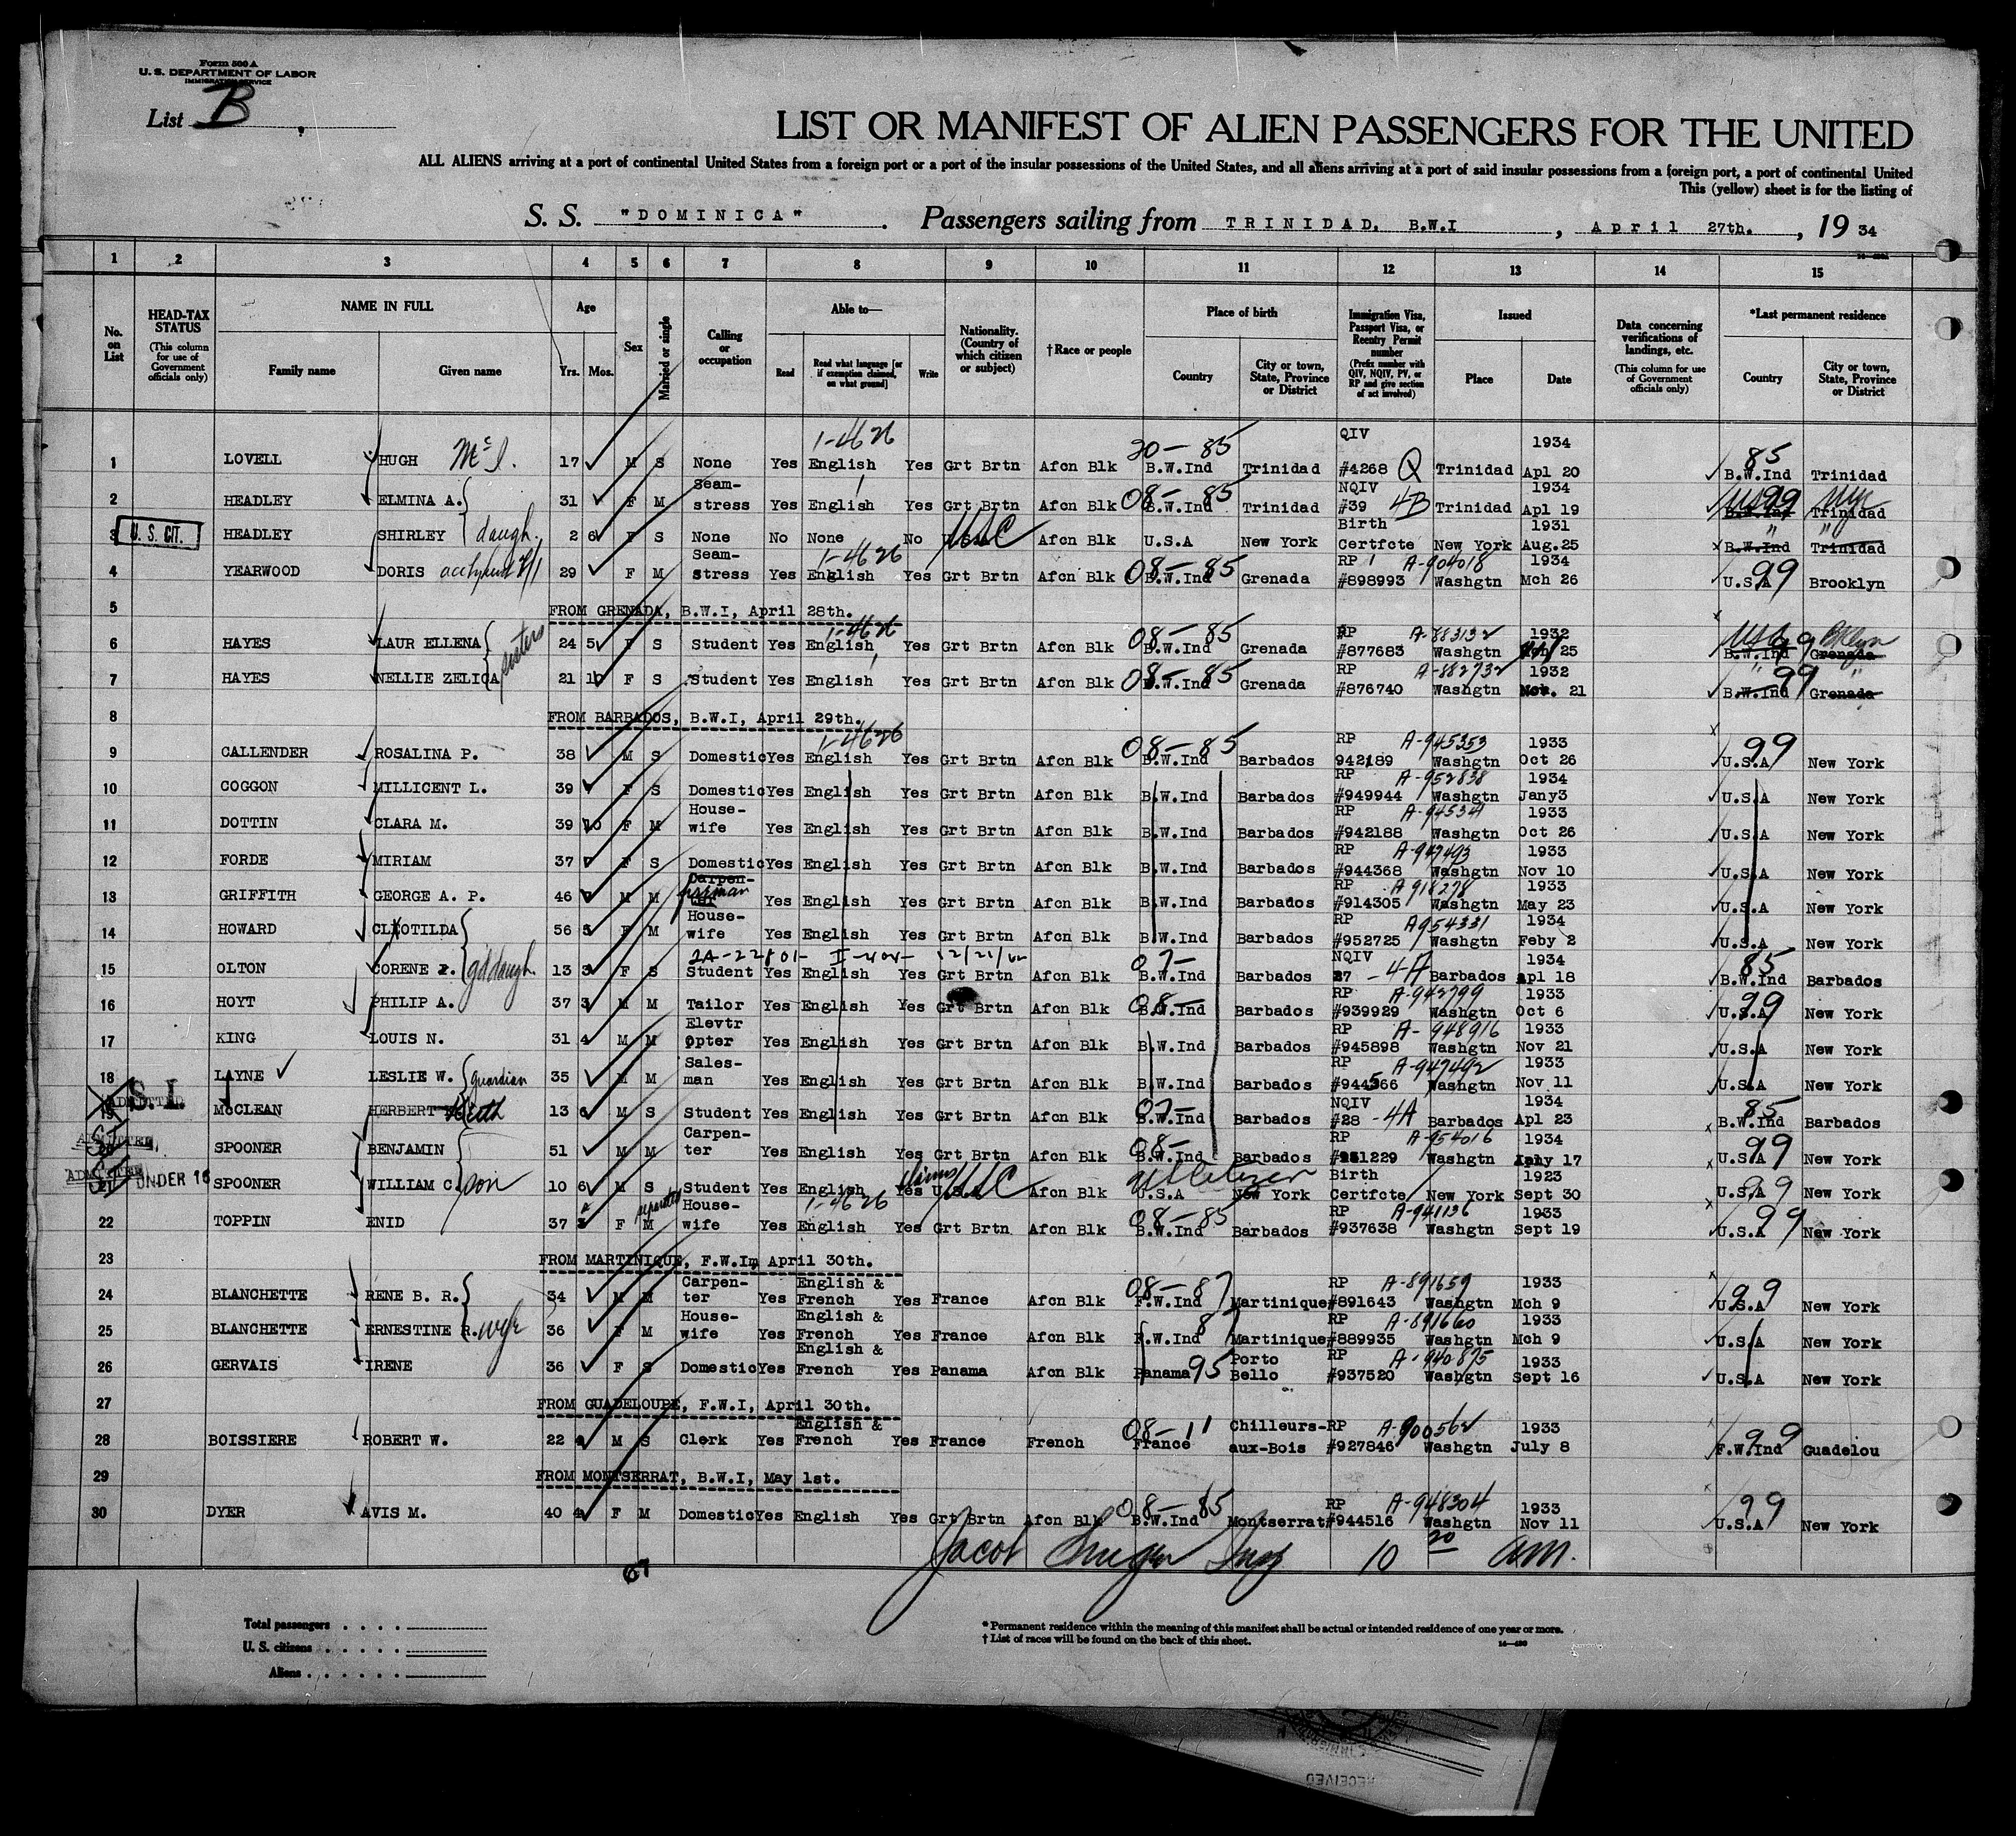 Form 500 A
U. S. DEPARTMENT OF LABOR
IMMIGRATION SERVICE
List B
LIST OR MANIFEST OF ALIEN PASSENGERS FOR THE UNITED
ALL ALIENS arriving at a port of continental United States from a foreign port or a port of the insular possessions of the United States, and all aliens arriving at a port of said insular possessions from a foreign port, a port of continental United
This (yellow) sheet is for the listing of
S. S. "DOMINICA". Passengers sailing from TRINIDAD, B.W.I, April 27th., 19 34
1 2 3 4 5 6 7 8 9 10 11 12 13 14 15
No. on List
HEAD-TAX STATUS (This column for use of Government officials only)
NAME IN FULL Family name Given name
Age Yrs. Mos.
Sex
Married or single
Calling or occupation
Able to— Read Read what language [or if exemption claimed, on what ground] Write
Nationality. (Country of which citizen or subject)
†Race or people
Place of birth Country City or town, State, Province or District
Immigration Visa, Passport Visa, or Reentry Permit number (Prefix number with QIV, NQIV, PV, or RP and give section of act involved)
Issued Place Date
Data concerning verifications of landings, etc. (This column for use of Government officials only)
*Last permanent residence Country City or town, State, Province or District
1 LOVELL HUGH 17 M S None Yes English 1-4626 Yes Grt Brtn Afcn Blk 20-85 B.W.Ind Trinidad QIV #4268 Q Trinidad 1934 Apl 20 85 B.W.Ind Trinidad
2 HEADLEY ELMINA A. 31 F M Seam-stress Yes English Yes Grt Brtn Afcn Blk 08-85 B.W.Ind Trinidad NQIV #39 4B Trinidad 1934 Apl 19 99 B.W.Ind Trinidad
U. S. CIT. 3 HEADLEY SHIRLEY daugh. 2 6 F S None No None No U.S.A USC Afcn Blk U.S.A New York Birth Certfcte New York 1931 Aug.25 B.W.Ind Trinidad
4 YEARWOOD DORIS 29 F M Seam-stress Yes English 1-4626 Yes Grt Brtn Afcn Blk 08-85 B.W.Ind Grenada RP #898993 A-904018 Washgtn 1934 Mch 26 99 U.S.A Brooklyn
5 FROM GRENADA, B.W.I, April 28th.
6 HAYES LAUR ELLENA sisters 24 5 F S Student Yes English 1-4626 Yes Grt Brtn Afcn Blk 08-85 B.W.Ind Grenada RP #877683 A-883132 Washgtn 1932 25 USA 99 Bklyn B.W.Ind Grenada
7 HAYES NELLIE ZELICA 21 10 F S Student Yes English Yes Grt Brtn Afcn Blk 08-85 B.W.Ind Grenada RP #876740 A-882732 Washgtn 1932 Mch. 21 99 B.W.Ind Grenada
8 FROM BARBADOS, B.W.I, April 29th.
9 CALLENDER ROSALINA P. 38 M S Domestic Yes English 1-4626 Yes Grt Brtn Afcn Blk 08-85 B.W.Ind Barbados RP 942189 A-945353 Washgtn 1933 Oct 26 99 U.S.A New York
10 COGGON MILLICENT L. 39 F S Domestic Yes English Yes Grt Brtn Afcn Blk B.W.Ind Barbados RP #949944 A-952838 Washgtn 1934 Jany3 U.S.A New York
11 DOTTIN CLARA M. 39 10 F M House-wife Yes English Yes Grt Brtn Afcn Blk B.W.Ind Barbados RP #942188 Washgtn 1933 Oct 26 U.S.A New York
12 FORDE MIRIAM 37 F S Domestic Yes English Yes Grt Brtn Afcn Blk B.W.Ind Barbados RP #944368 A-947493 Washgtn 1933 Nov 10 U.S.A New York
13 GRIFFITH GEORGE A. P. 46 M M Carpen-ter Yes English Yes Grt Brtn Afcn Blk B.W.Ind Barbados RP #914305 A 918278 Washgtn 1933 May 23 U.S.A New York
14 HOWARD CLOTILDA 56 F M House-wife Yes English Yes Grt Brtn Afcn Blk B.W.Ind Barbados RP #952725 A954331 Washgtn 1934 Feby 2 U.S.A New York
15 OLTON CORENE gd daugh 13 3 F S Student Yes English Yes Grt Brtn Afcn Blk 07- B.W.Ind Barbados NQIV 27 -4A Barbados 1934 Apl 18 85 B.W.Ind Barbados
16 HOYT PHILIP A. 37 3 M M Tailor Yes English Yes Grt Brtn Afcn Blk 08- B.W.Ind Barbados RP #939929 A-942799 Washgtn 1933 Oct 6 99 U.S.A New York
17 KING LOUIS N. 31 4 M M Elevtr opter Yes English Yes Grt Brtn Afcn Blk B.W.Ind Barbados RP #945898 A-948916 Washgtn 1933 Nov 21 U.S.A New York
18 LAYNE LESLIE W. guardian 35 M M Sales-man Yes English Yes Grt Brtn Afcn Blk B.W.Ind Barbados RP #944566 A-947492 Washgtn 1933 Nov 11 U.S.A New York
ADMITTED S. I. 19 McCLEAN HERBERT Keith 13 6 M S Student Yes English Yes Grt Brtn Afcn Blk 07- B.W.Ind Barbados NQIV #28 -4A Barbados 1934 Apl 23 85 B.W.Ind Barbados
ADMITTED SPOONER BENJAMIN 51 M M Carpen-ter Yes English Yes Grt Brtn Afcn Blk 08- B.W.Ind Barbados RP #951229 A-954016 Washgtn 1934 17 99 U.S.A New York
ADMITTED UNDER 16 SPOONER WILLIAM C. son 10 6 M S Student Yes English Yes U.S.A USC Afcn Blk U.S.A New York Birth Certfcte New York 1923 Sept 30 99 U.S.A New York
22 TOPPIN ENID 37 F M House-wife Yes English 1-4626 Yes Grt Brtn Afcn Blk 08-85 B.W.Ind Barbados RP #937638 A-941136 Washgtn 1933 Sept 19 99 U.S.A New York
23 FROM MARTINIQUE, F.W.Im April 30th.
24 BLANCHETTE RENE B. R. 34 M M Carpen-ter Yes English & French Yes France Afcn Blk 08-87 F.W.Ind Martinique RP #891643 A-891659 Washgtn 1933 Mch 9 99 U.S.A New York
25 BLANCHETTE ERNESTINE R. wife 36 F M House-wife Yes English & French Yes France Afcn Blk 87 F.W.Ind Martinique RP #889935 A-891660 Washgtn 1933 Mch 9 U.S.A New York
26 GERVAIS IRENE 36 F S Domestic Yes English & French Yes Panama Afcn Blk Panama 95 Porto Bello RP #937520 A-940875 Washgtn 1933 Sept 16 U.S.A New York
27 FROM GUADELOUPE, F.W.I, April 30th.
28 BOISSIERE ROBERT W. 22 4 M S Clerk Yes English & French Yes France French 08-11 France Chilleurs-aux-Bois RP #927846 A-900562 Washgtn 1933 July 8 99 F.W.Ind Guadelou
29 FROM MONTSERRAT, B.W.I, May 1st.
30 DYER AVIS M. 40 4 F M Domestic Yes English Yes Grt Brtn Afcn Blk 08-85 B.W.Ind Montserrat RP #944516 A-948304 Washgtn 1933 Nov 11 99 U.S.A New York
Jacob 10 20 am.
67
Total passengers
U. S. citizens
Aliens
*Permanent residence within the meaning of this manifest shall be actual or intended residence of one year or more.
†List of races will be found on the back of this sheet.
14—430
RECEIVED